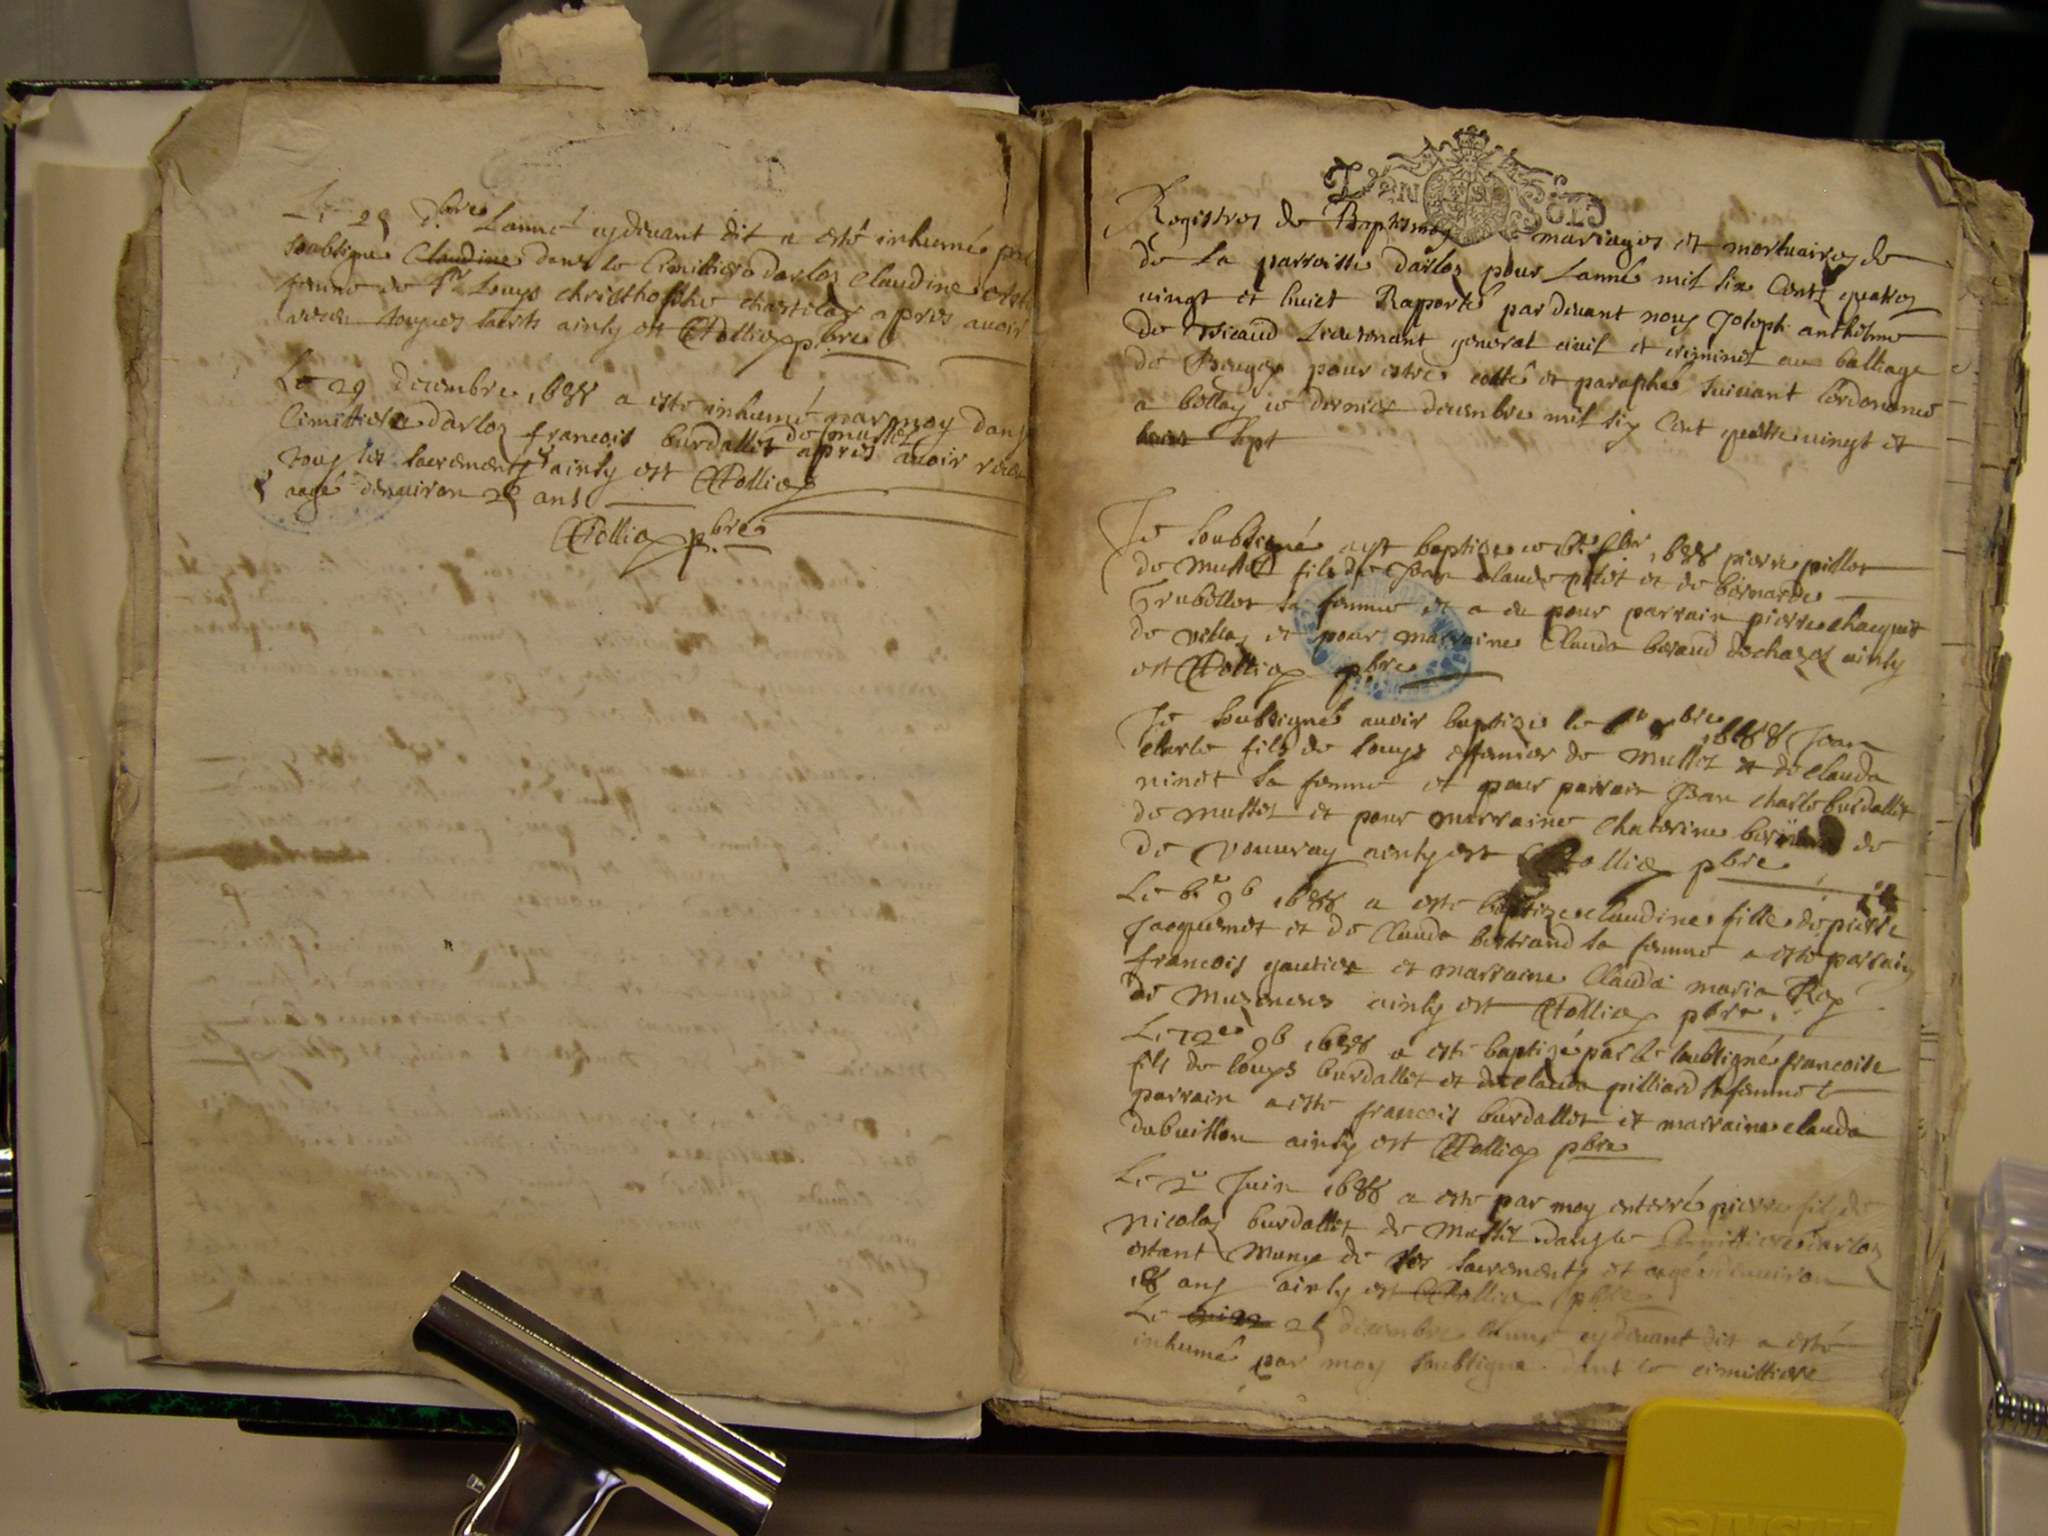 Le 25 Xbre Lanné cydevant dit a esté inhumé par
soubsigné Claudine dans le Cimittiere darloz Claudine
femme de Sr Louys Christhofphe Chastelaz apres avoir
receu touques sacrts ainsy est CTollioz pbre
Le 29 decembre 1688 a esté inhumé par moy dans
Cimittiere darloz francois burdallet de mussel apres avoir receu
tous les sacrements ainsy est CTollioz
aagé denviron 28 ans
CTollioz pbre
Registres de Baptesmes mariages et mortuaires de
de La parroisse darloz pour Lanné mil six Cents quatres
vingt et huict Raporté pardevant nous Joseph anthelme
de Lieutenant general civil et criminel au balliage
de Beugey pour estre cotté et paraphé suivant lordonance
a belley ce dernier decembre mil six Cent quattre vingt et
huict sept
Je soubsigné ayst baptizé ce 1688 pierre pillet
de Mussel fils de Jean claude pilet et de bernarde
Trubellet sa femme et a eu pour parrain pierre chacquet
de villaz et pour marraine Clauda beraud de chazel ainsy
est CTollioz pbre
Je soubsigné avoir baptizé le 1688 Jean
Charle fils de Louys de Mussel et de Clauda
ninet sa femme et pour parrain Jean Charle burdallet
de mussel et pour marraine Chaterine de
de vouvray ainsy est CTollioz pbre
Le 6e 9b 1688 a esté baptizé claudine fille de pierre
Jacquemet et de Clauda bertrand sa femme a esté parrain
francois gautier et marraine Clauda maria Rey
de Musinens ainsy est CTollioz pbre
Le 12e 9b 1688 a esté baptizé par le soubsigné francoise
fils de louys burdallet et de clauda pilliard sa femme le
parrain a esté francois burdallet et marraine clauda
dubuisson ainsy est CTollioz pbre
Le 2e Juin 1688 a esté par moy enterré pierre fils de
Nicolas burdallet de Mussel dans le Cimittiere darloz
estant Muny de ses sacrements et agé denviron
18 ans ainsy est CTollioz pbre
Le 25 decembre lanné cydevant dit a esté
inhumé par moy soubsigné dans le cimittiere